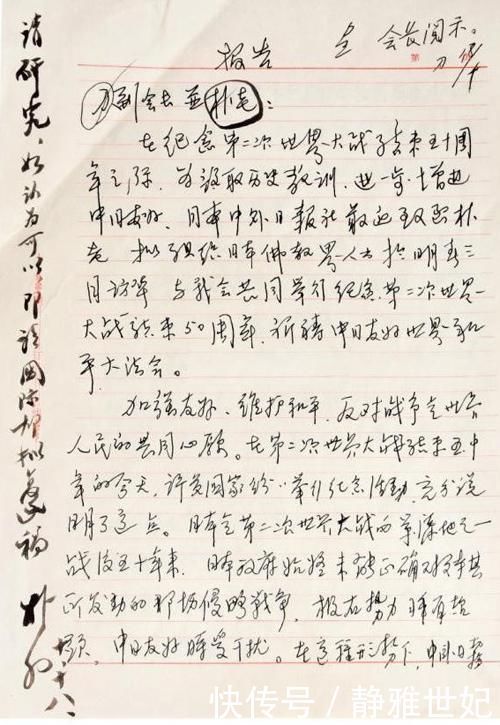 呈 会长阅示。
刀
报告
刀副会长并朴老:
在纪念第二次世界大战结束五十周
年之际,为汲取历史教训,进一步增进
中日友好,日本中外日报社
老 拟组织日本佛教界人士于明年三
月访华 与我会共同举行纪念第二次世界
大战结束50周年,祈祷中日友好世界和
平大法会。
加强友好、维护和平,反对战争是世界
人民的共同心愿。在第二次世界大战结束五十
年的今天,许多国家纷纷举行纪念活动,充分说
明了这点。日本是第二次世界大战的策源地之一
战后五十年来,日本政府始终未能正确对待其
所发动的那场侵略战争,极右势力时有抬
头,中日友好时受干扰。在这种形势下,中外日报
请研究,如认为可以,即请国际部拟复稿
朴初
十八
快传号 / 静雅世妃